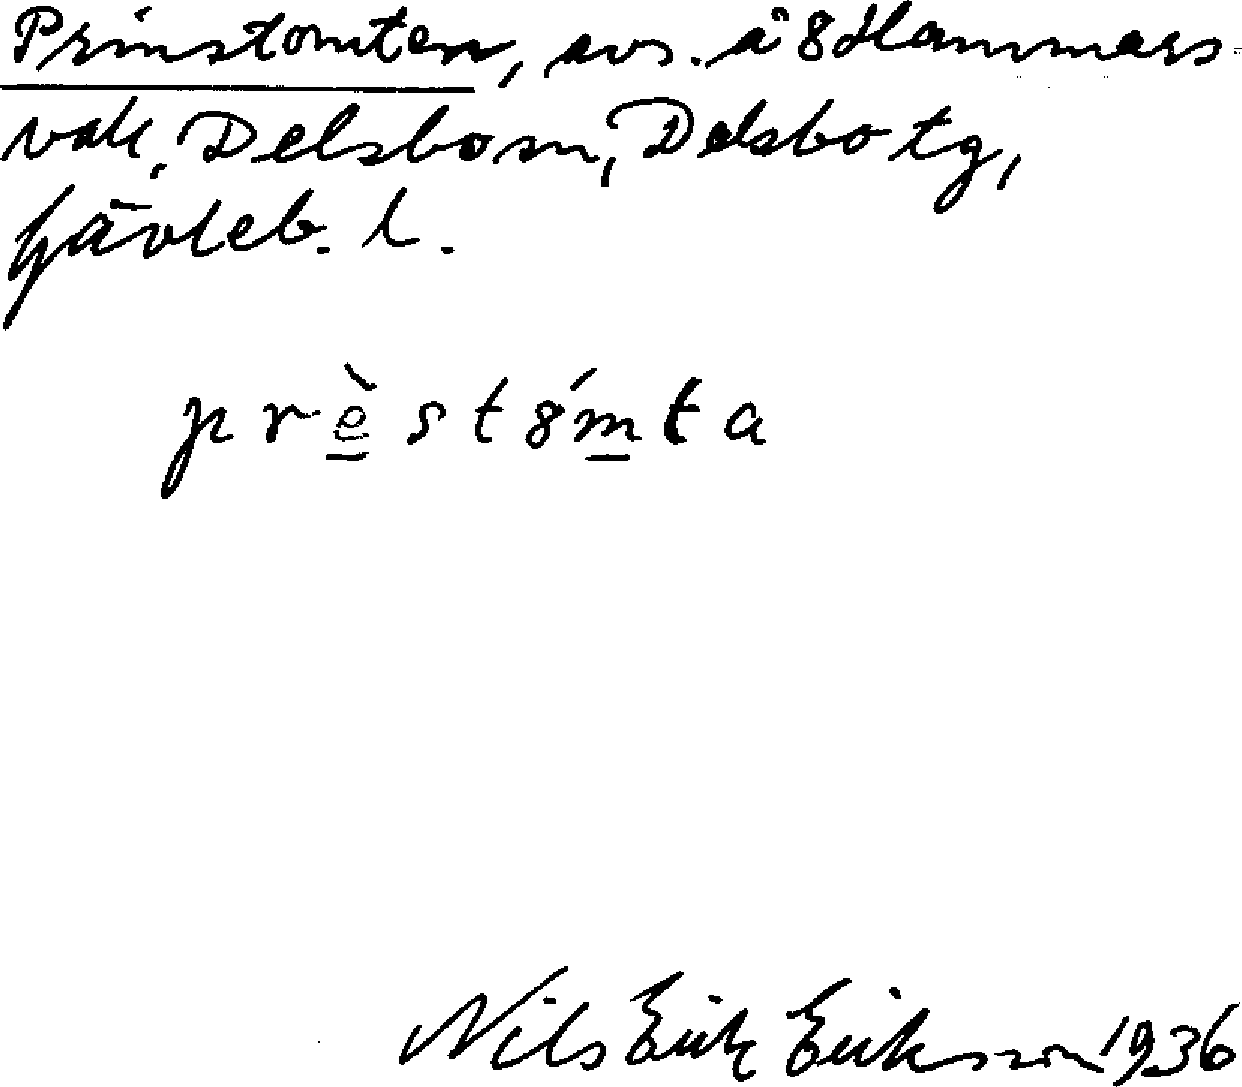 Prinstomten, avs. å 8 Hammars-
vall, Delsbo sn, Delsbo tg,
Gävleb. l.
prèstómta
Nils Erik Erikson 1936